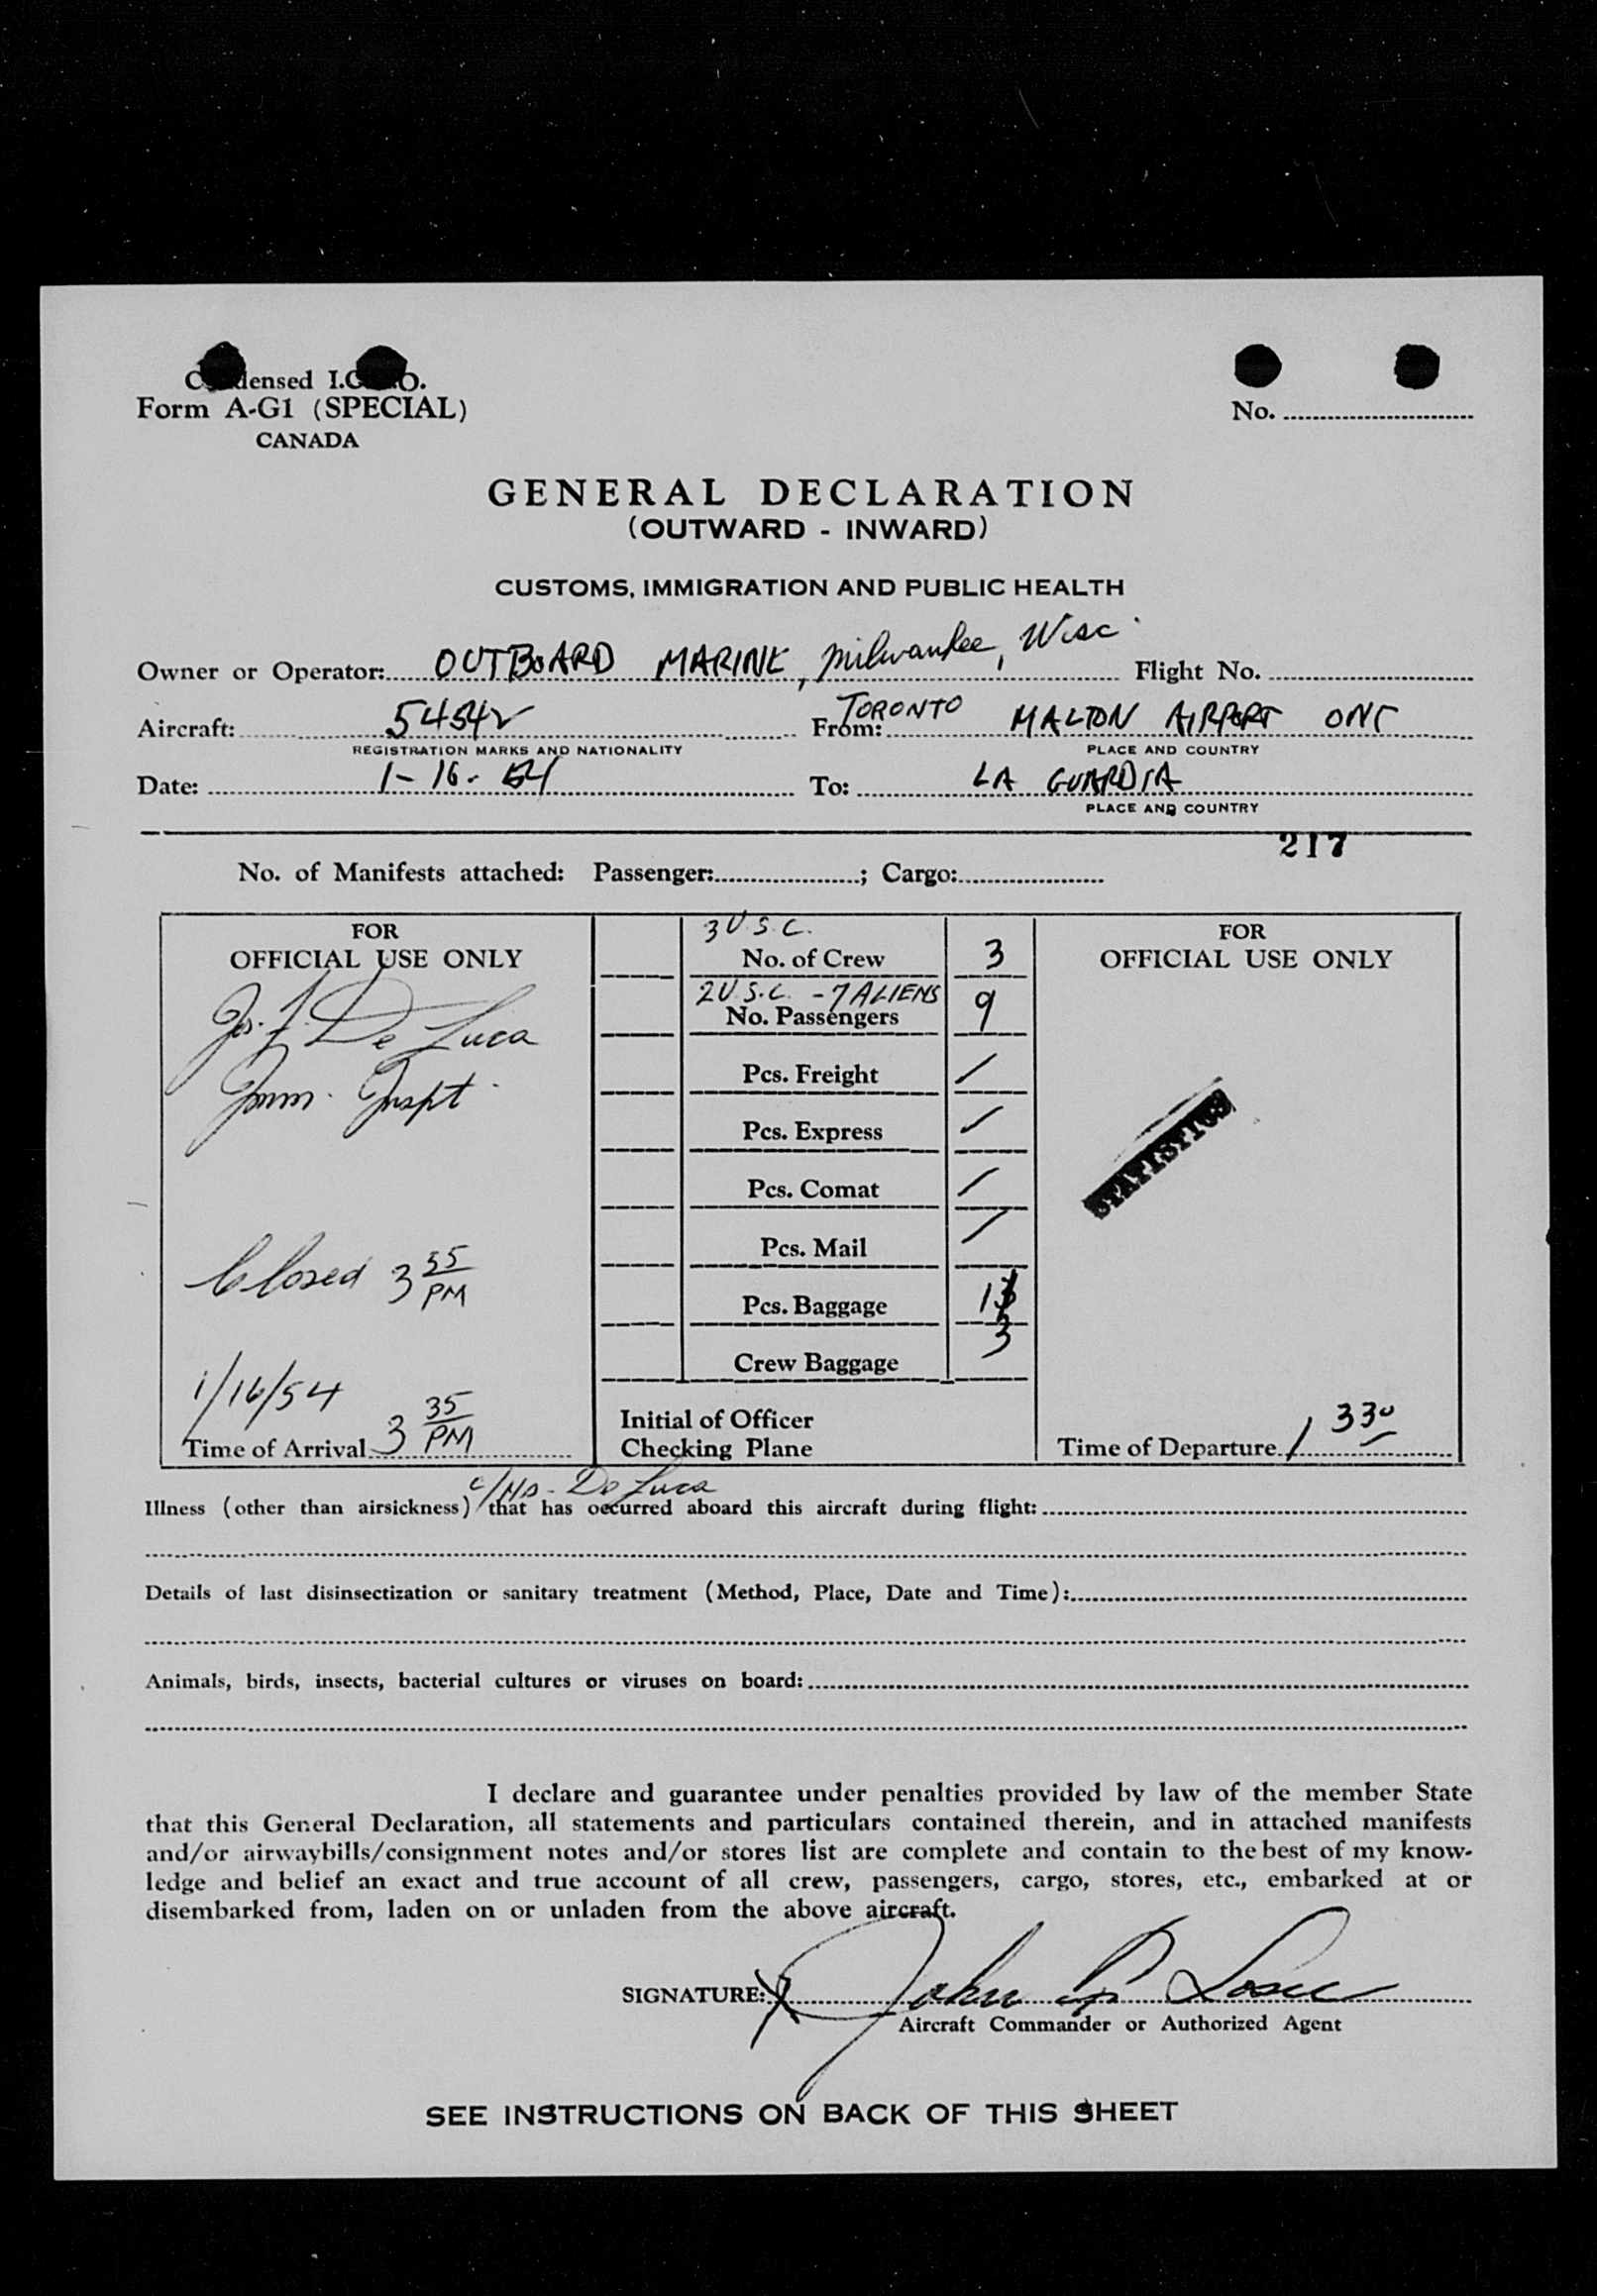 Condensed I.C.A.O.
Form A-G1 (SPECIAL)
CANADA
No.
GENERAL DECLARATION
(OUTWARD - INWARD)
CUSTOMS, IMMIGRATION AND PUBLIC HEALTH
Owner or Operator: OUTBOARD MARINE, Milwaukee, Wisc. Flight No.
Aircraft: 5454V From: TORONTO MALTON AIRPORT ONT
REGISTRATION MARKS AND NATIONALITY PLACE AND COUNTRY
Date: 1-16-54 To: LA GUARDIA
PLACE AND COUNTRY
217
No. of Manifests attached: Passenger: ; Cargo:
FOR
OFFICIAL USE ONLY
Jos. J. De Luca
Imm. Inspt.
Closed 3 55 PM
1/16/54
Time of Arrival 3 35 PM
3 U.S.C.
No. of Crew 3
2 U.S.C. - 7 ALIENS
No. Passengers 9
Pcs. Freight
Pcs. Express
Pcs. Comat
Pcs. Mail
Pcs. Baggage 13
3
Crew Baggage
Initial of Officer
Checking Plane
FOR
OFFICIAL USE ONLY
STATISTICS
Time of Departure 1 330
De Luca
Illness (other than airsickness) that has occurred aboard this aircraft during flight:
Details of last disinsectization or sanitary treatment (Method, Place, Date and Time):
Animals, birds, insects, bacterial cultures or viruses on board:
I declare and guarantee under penalties provided by law of the member State
that this General Declaration, all statements and particulars contained therein, and in attached manifests
and/or airwaybills/consignment notes and/or stores list are complete and contain to the best of my know-
ledge and belief an exact and true account of all crew, passengers, cargo, stores, etc., embarked at or
disembarked from, laden on or unladen from the above aircraft.
SIGNATURE: X John
Aircraft Commander or Authorized Agent
SEE INSTRUCTIONS ON BACK OF THIS SHEET